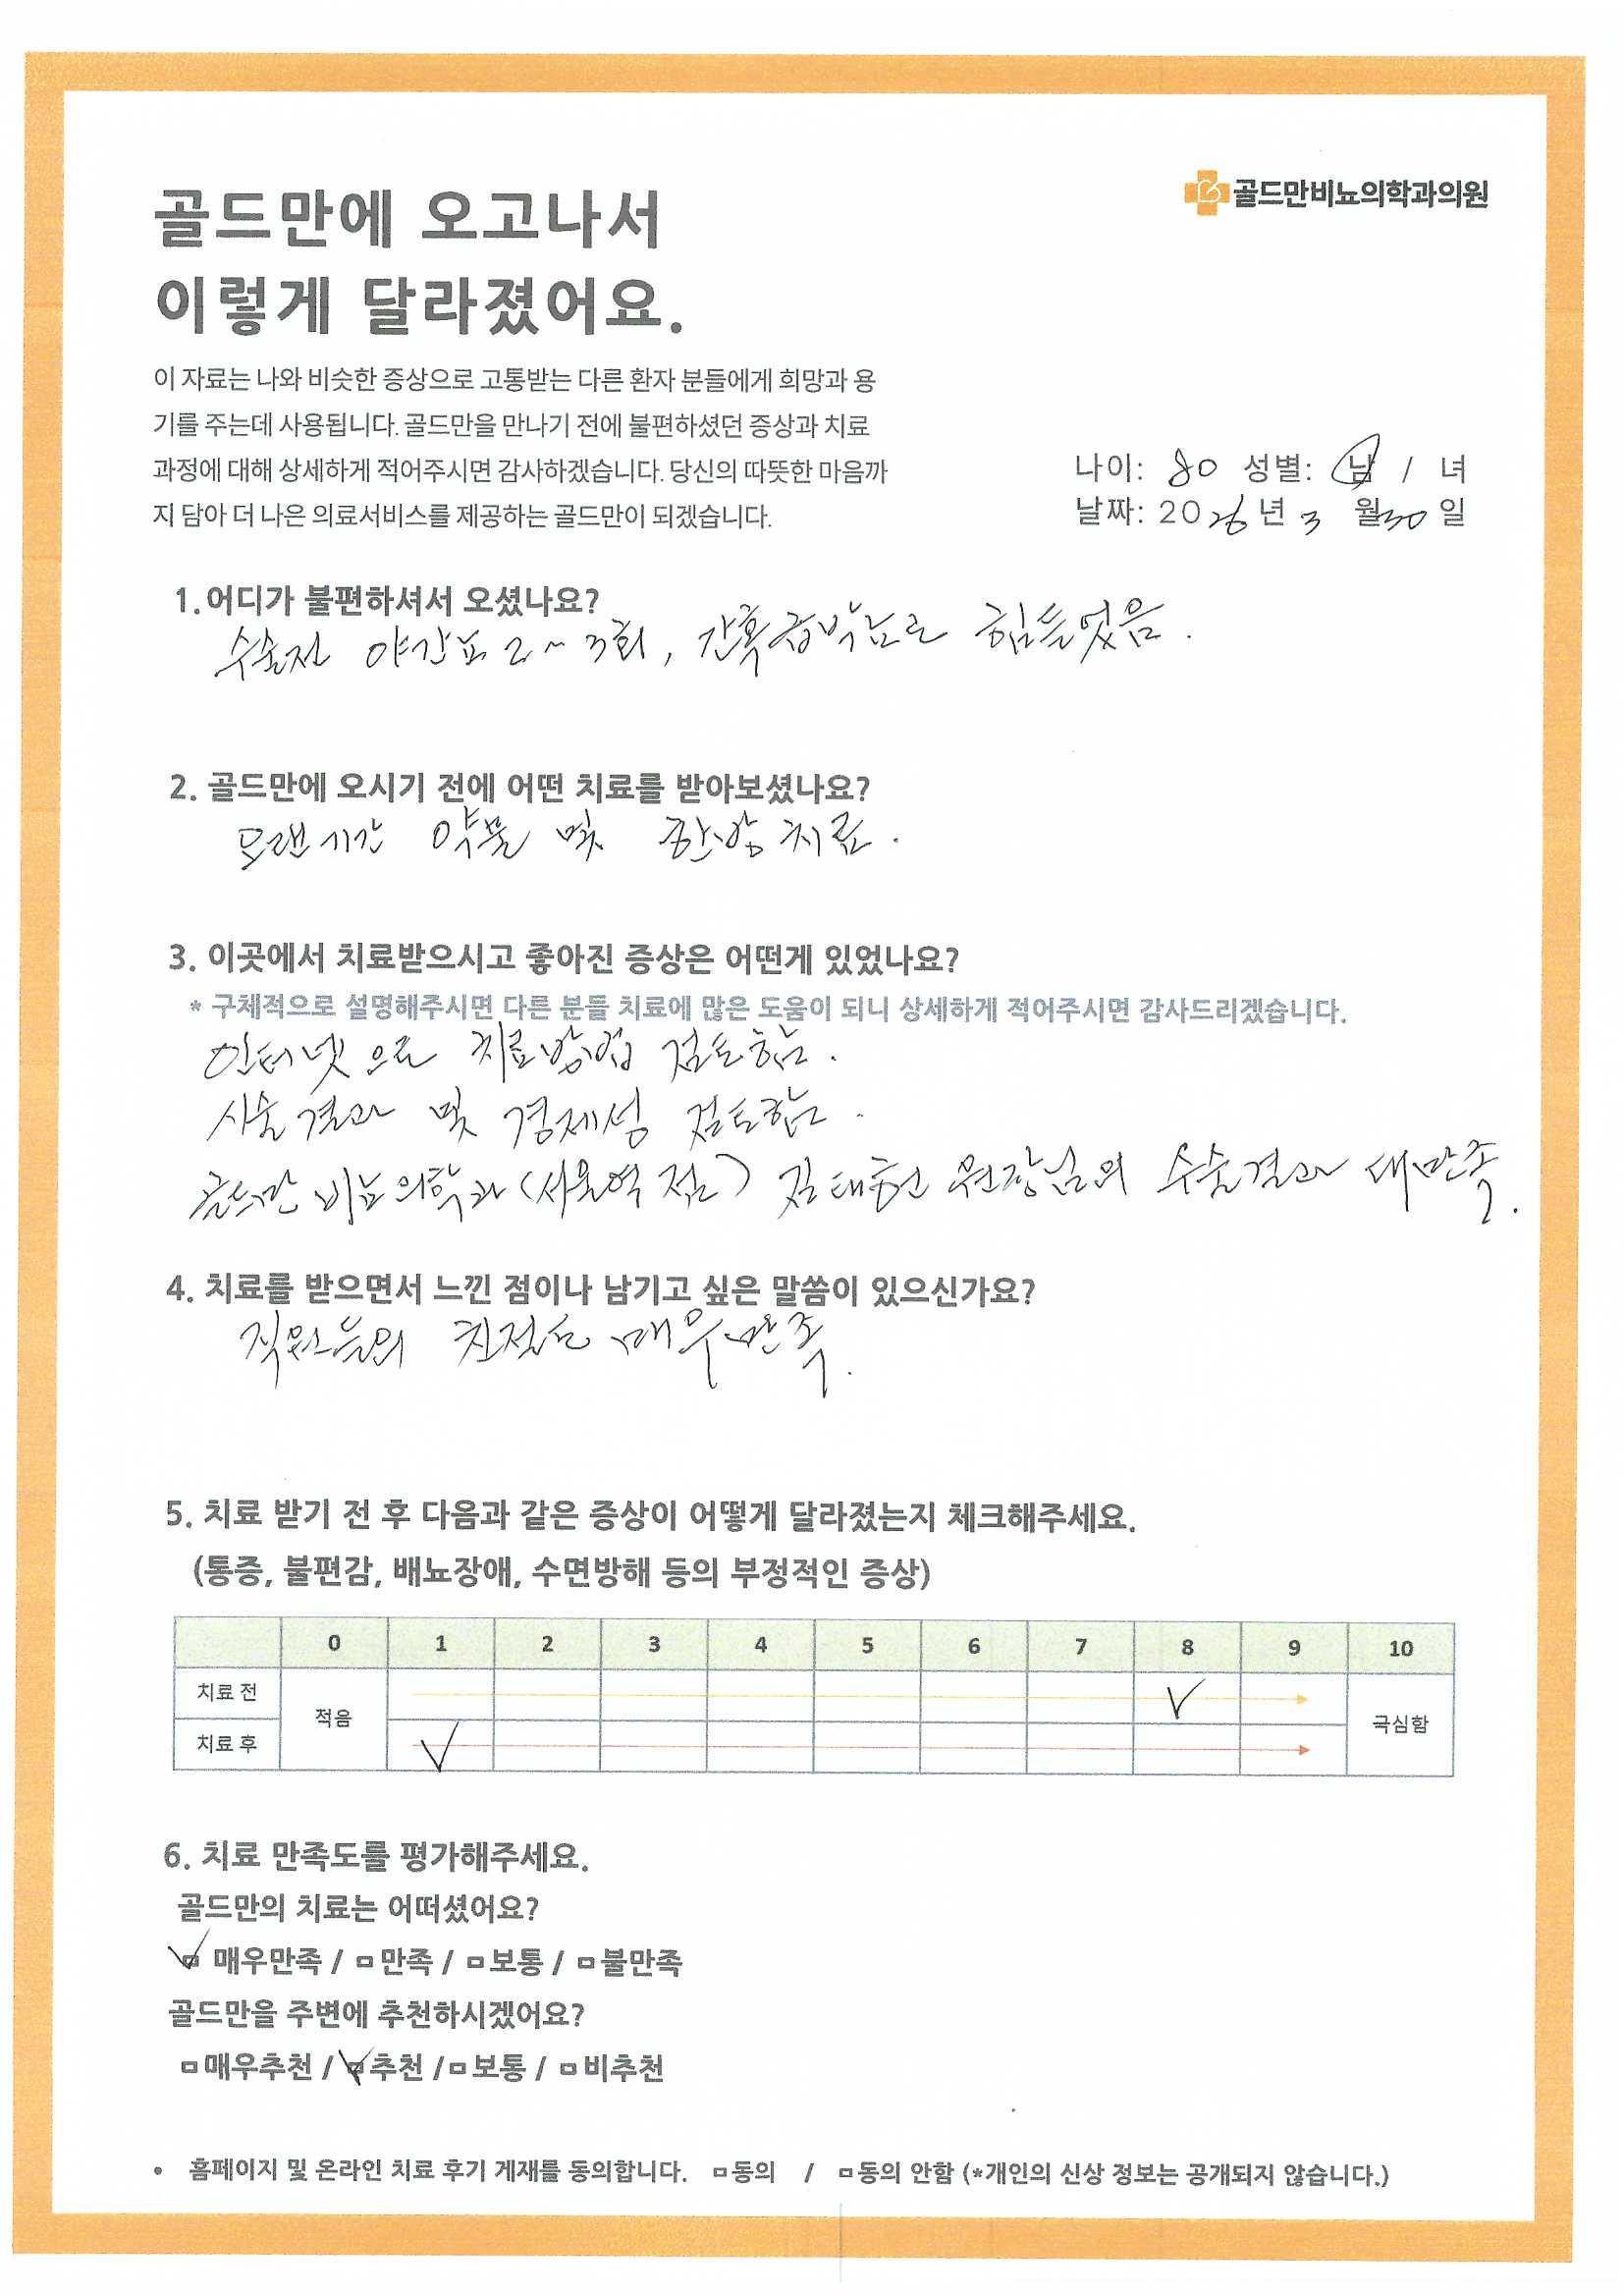 골드만비뇨의학과의원
골드만에 오고나서
이렇게 달라졌어요.
이 자료는 나와 비슷한 증상으로 고통받는 다른 환자 분들에게 희망과 용
기를 주는데 사용됩니다. 골드만을 만나기 전에 불편하셨던 증상과 치료
과정에 대해 상세하게 적어주시면 감사하겠습니다. 당신의 따뜻한 마음까
지 담아 더 나은 의료서비스를 제공하는 골드만이 되겠습니다.
나이: 80 성별: 남 / 녀
날짜: 2026년 3 월30일
1.어디가 불편하셔서 오셨나요?
수술전 야간뇨 2~3회, 간혹 급박뇨로 힘들었음.
2. 골드만에 오시기 전에 어떤 치료를 받아보셨나요?
오랜시간 약물 및 한방치료.
3. 이곳에서 치료받으시고 좋아진 증상은 어떤게 있었나요?
* 구체적으로 설명해주시면 다른 분들 치료에 많은 도움이 되니 상세하게 적어주시면 감사드리겠습니다.
인터넷으로 치료방법 검토함.
시술결과 및 경제성 검토함.
골드만 비뇨의학과(서울역점) 김태헌 원장님의 수술결과 대만족.
4. 치료를 받으면서 느낀 점이나 남기고 싶은 말씀이 있으신가요?
직원들의 친절도 매우만족.
5. 치료 받기 전 후 다음과 같은 증상이 어떻게 달라졌는지 체크해주세요.
(통증, 불편감, 배뇨장애, 수면방해 등의 부정적인 증상)
0 1 2 3 4 5 6 7 8 9 10
치료 전 ✓
적음 극심함
치료 후 ✓
6. 치료 만족도를 평가해주세요.
골드만의 치료는 어떠셨어요?
☑ 매우만족 / □ 만족 / □ 보통 / □ 불만족
골드만을 주변에 추천하시겠어요?
□ 매우추천 / ☑ 추천 / □ 보통 / □ 비추천
• 홈페이지 및 온라인 치료 후기 게재를 동의합니다. □ 동의 / □ 동의 안함 (*개인의 신상 정보는 공개되지 않습니다.)